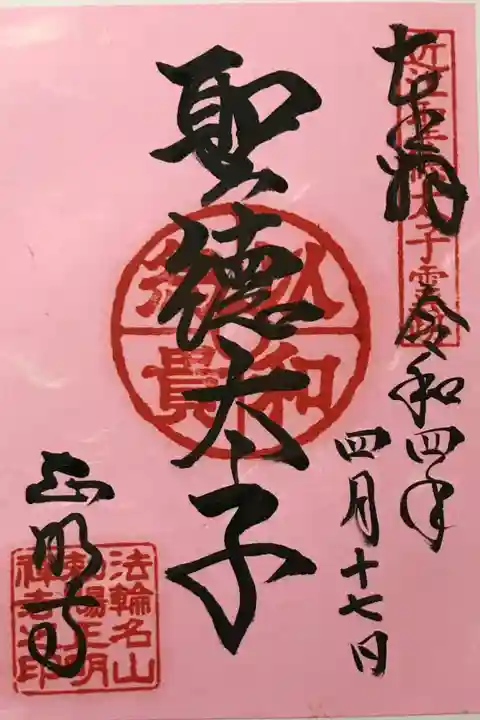 奉拝
近江聖徳太子霊跡
令和四年
四月十七日
聖徳太子
以和
為貴
正明寺
法輪名山
勅賜正明
禅寺之印